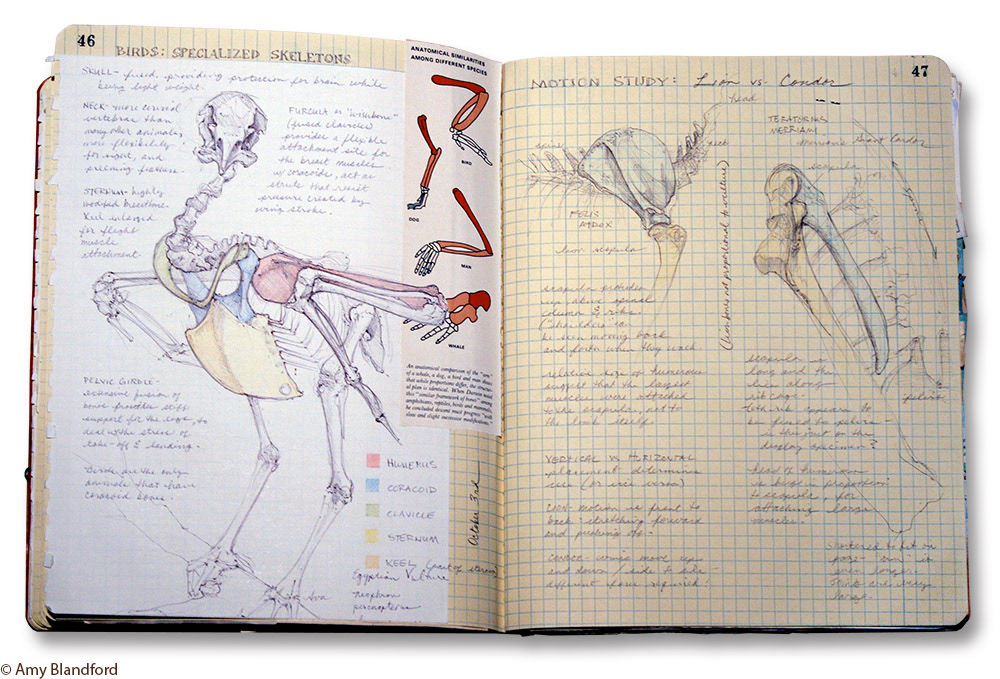 46
BIRDS: SPECIALIZED SKELETONS
SKULL- fused, providing protection for brain while
being light weight.
NECK- more cervical
vertebrae than
many other animals,
more flexibility
for sight, and
preening feathers.
STERNUM- highly
modified breastbone.
Keel enlarged
for flight
muscle
attachment.
FURCULA or "wishbone"
(fused clavicles)
provides a flexible
attachment site for
the breast muscles
w/ coracoids, act as
struts that resist
pressure created by
wing stroke.
PELVIC GIRDLE-
extensive fusion of
bones provides stiff
support for the legs, to
deal w/ the stress of
take-off & landing.
Birds are the only
animals that have
coracoid bones.
ANATOMICAL SIMILARITIES
AMONG DIFFERENT SPECIES
BIRD
DOG
MAN
WHALE
An anatomical comparison of the "arm"
of a whale, a dog, a bird and man shows
that while proportions differ, the structur-
al plan is identical. When Darwin noted
this "similar framework of bones" among
amphibians, reptiles, birds and mammals,
he concluded descent must progress "with
slow and slight successive modifications."
HUMERUS
CORACOID
CLAVICLE
STERNUM
KEEL (part of sternum)
Egyptian Vulture
Neophron
percnopterus
October 3rd
47
MOTION STUDY: Lion vs. Condor
head
spine
neck
FELIS
ATROX
lion scapula
(lion bones not proportional to vulture)
TERATORNIS
MERRIAMI
Merriam's Giant Condor
scapula
pelvis
scapula provides
up above spinal
column & ribs.
(shoulders can
be seen moving back
and forth when they walk.
relative size of humerous
suggest that the largest
muscles were attached
to the scapulas, not to
the trunk itself.
VERTICAL VS HORIZONTAL
placement determines
use (or vice versa)
LION- motion is front to
back: stretching forward
and pushing off.
CONDOR- wings move up
and down / side to side
different force required!
scapula is
long and thin
lies along
rib cage.
10th rib appears to
be fused to pelvis-
is this just on the
display specimen?
head of humerous
is huge in proportion
to scapula, for
attaching large
muscles.
shortened to fit on
page- "arm" is
even longer.
Think arms very
large.
© Amy Blandford